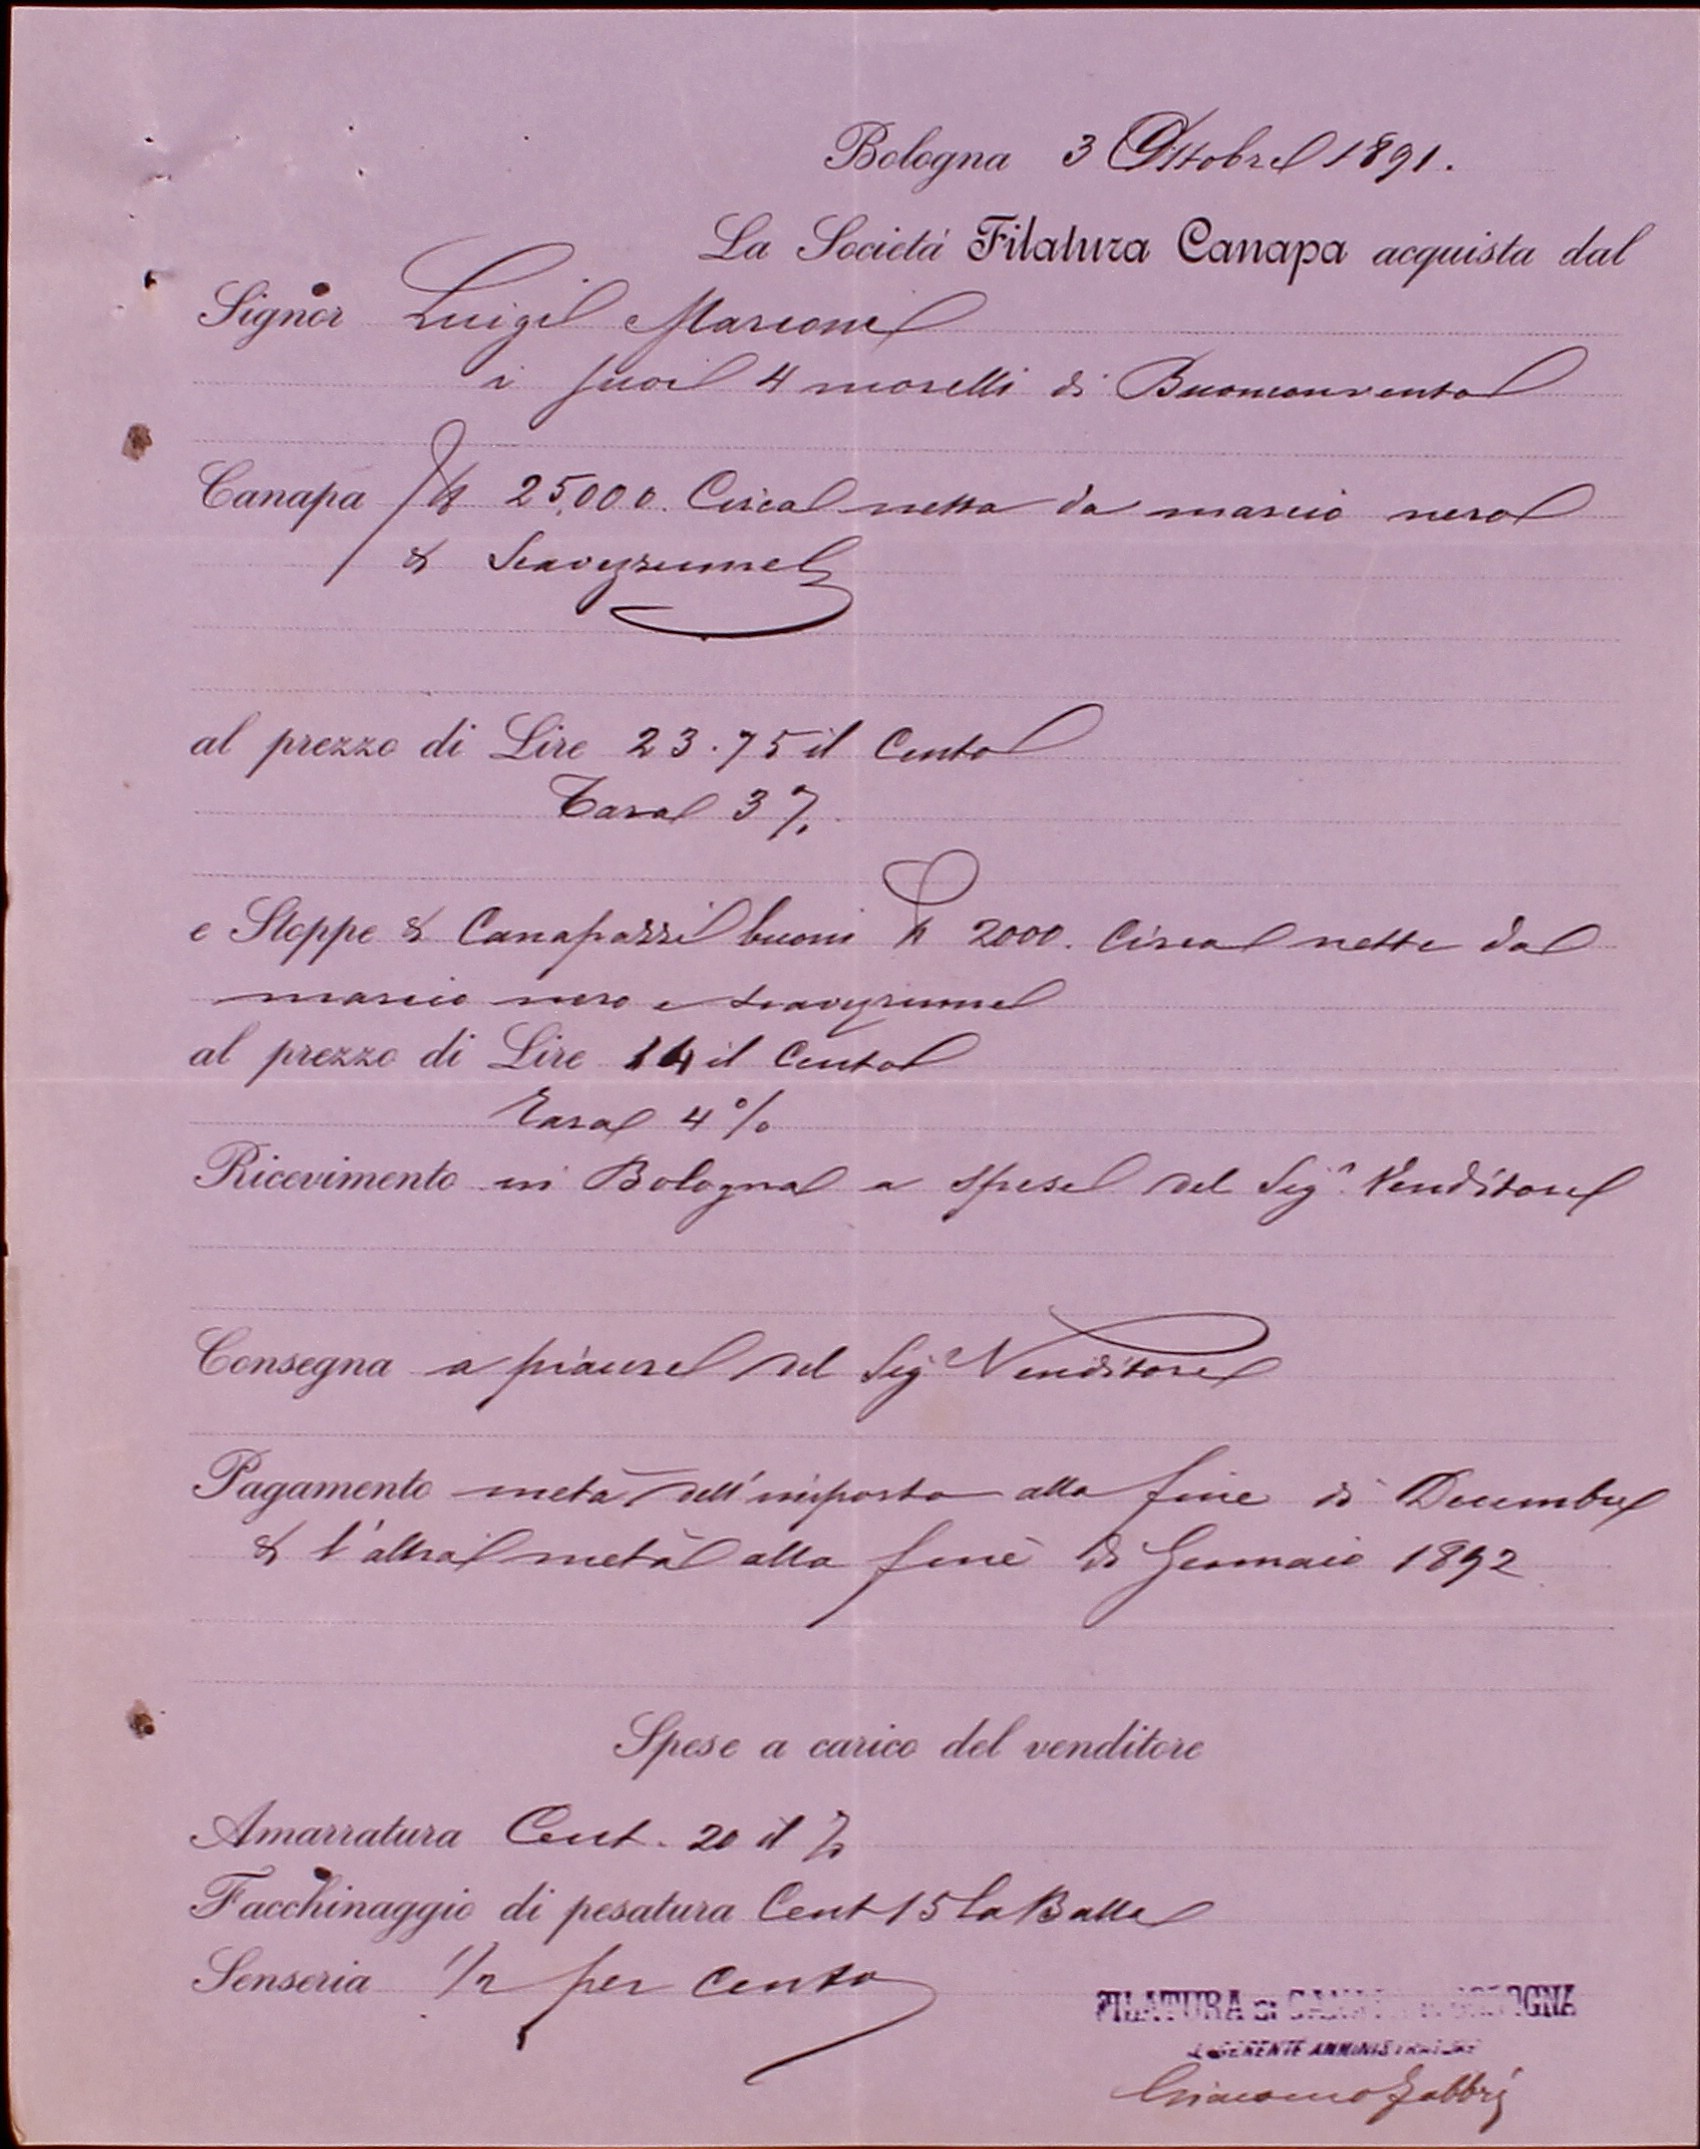 Bologna 3 Ottobre 1891.
La Società Filatura Canapa acquista dal
Signor Luigi Marconi
i suoi 4 morelli di Buonconvento
Canapa K 25,000. Circa netta da marcio nero
& Scavezzume
al prezzo di Lire 23.75 il Cento
Tara 3 %
e Stoppe & Canapazzi buoni K 2000. Circa nette da
marcio nero e scavezzume
al prezzo di Lire 14 il Cento
Tara 4 %
Ricevimento in Bologna a spese del Sigr. Venditore
Consegna a piacere del Sigr Venditore
Pagamento metà dell'importo alla fine di Decembre
& l'altra metà alla fine di Gennaio 1892
Spese a carico del venditore
Amarratura Cent. 20 il %
Facchinaggio di pesatura Cent 15 la Balla
Senseria 1/2 per Cento
FILATURA DI CANAPA IN BOLOGNA
IL GERENTE AMMINISTRATORE
Giacomo Fabbri